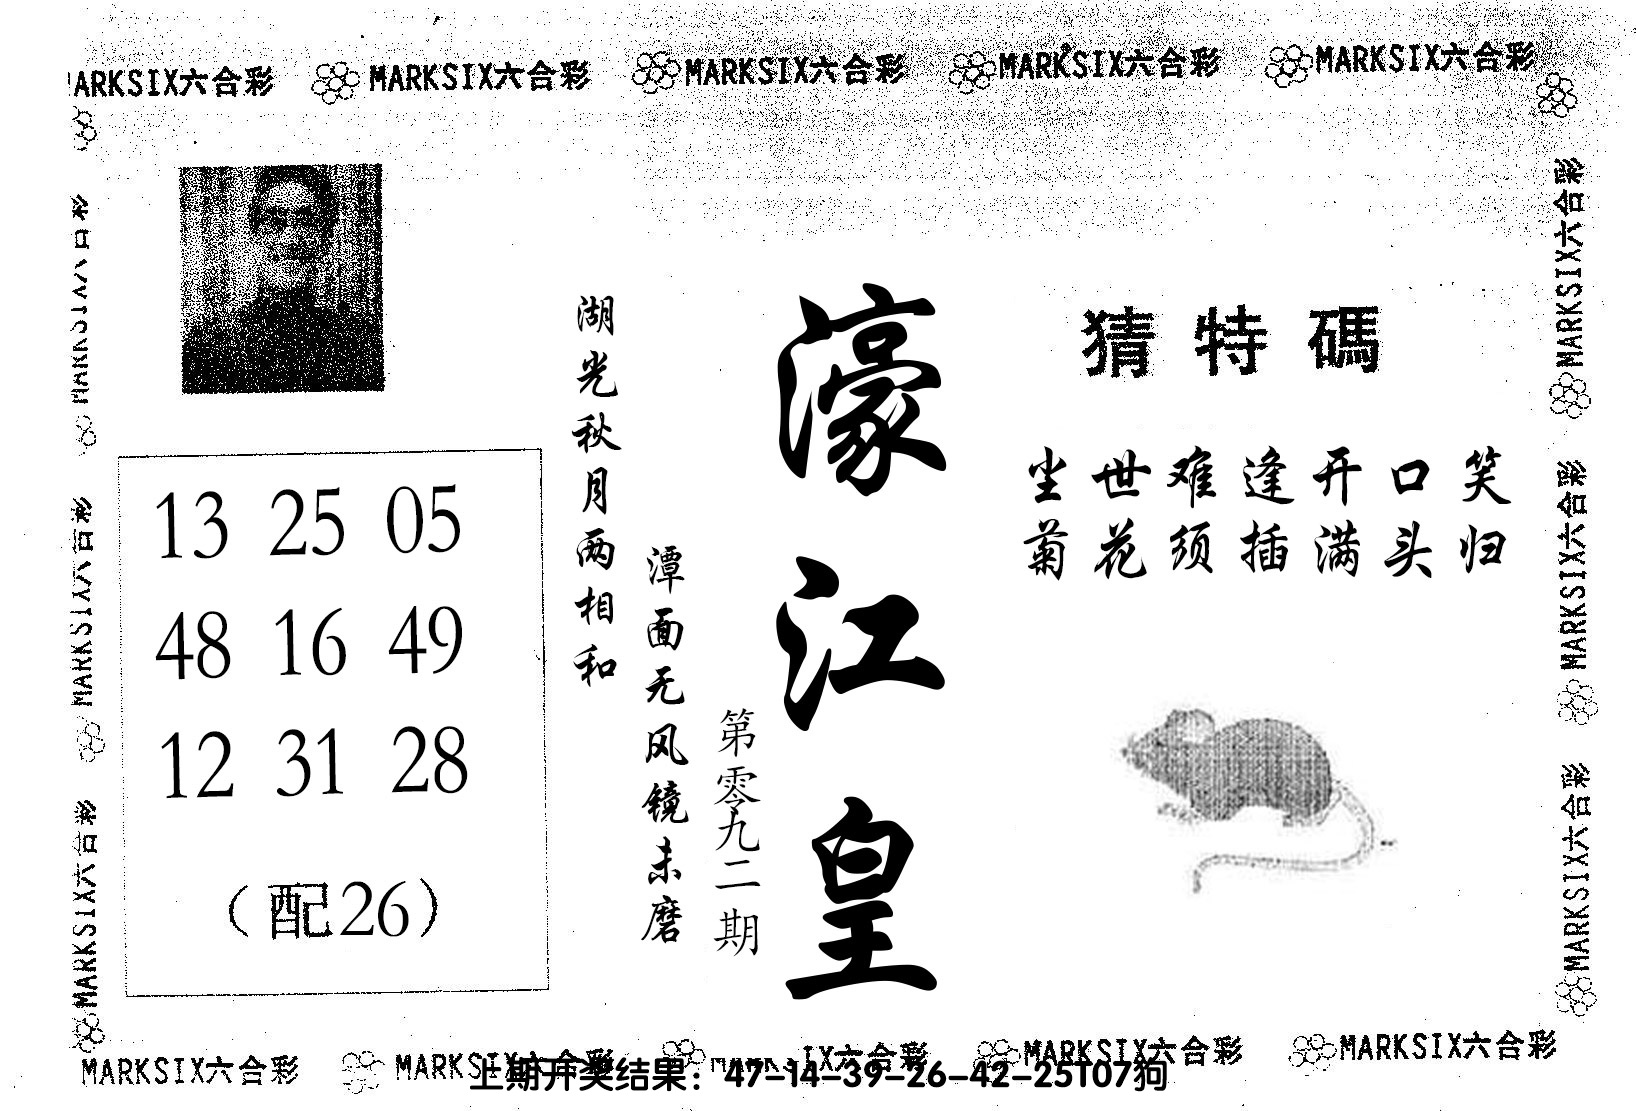 MARKSIX六合彩 MARKSIX六合彩 MARKSIX六合彩 MARKSIX六合彩
ARKSIX六合彩
猜特碼
尘世难逢开口笑
菊花须插满头归
濠江皇
第零九二期
湖光秋月两相和
潭面无风镜未磨
13 25 05
48 16 49
12 31 28
（配26）
MARKSIX六合彩
MARKSIX六合彩
MARKSIX六合彩
MARKSIX六合彩
MARKSIX六合彩
MARKSIX六合彩 MARKSIX六合彩 MARKSIX六合彩 MARKSIX六合彩
上期开奖结果：47-14-39-26-42-25T07狗